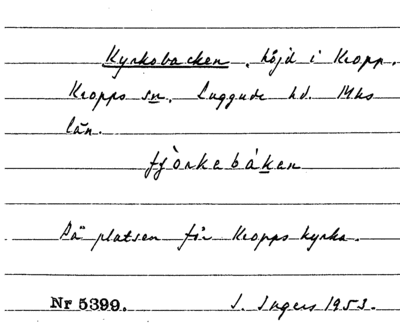 Kyrkobacken, höjd i Kropp.
Kropps sn. Luggude hd. Mhs
län.
fjòrkebákan
På platsen för Kropps kyrka.
Nr 5399. J. Ingers 1953.